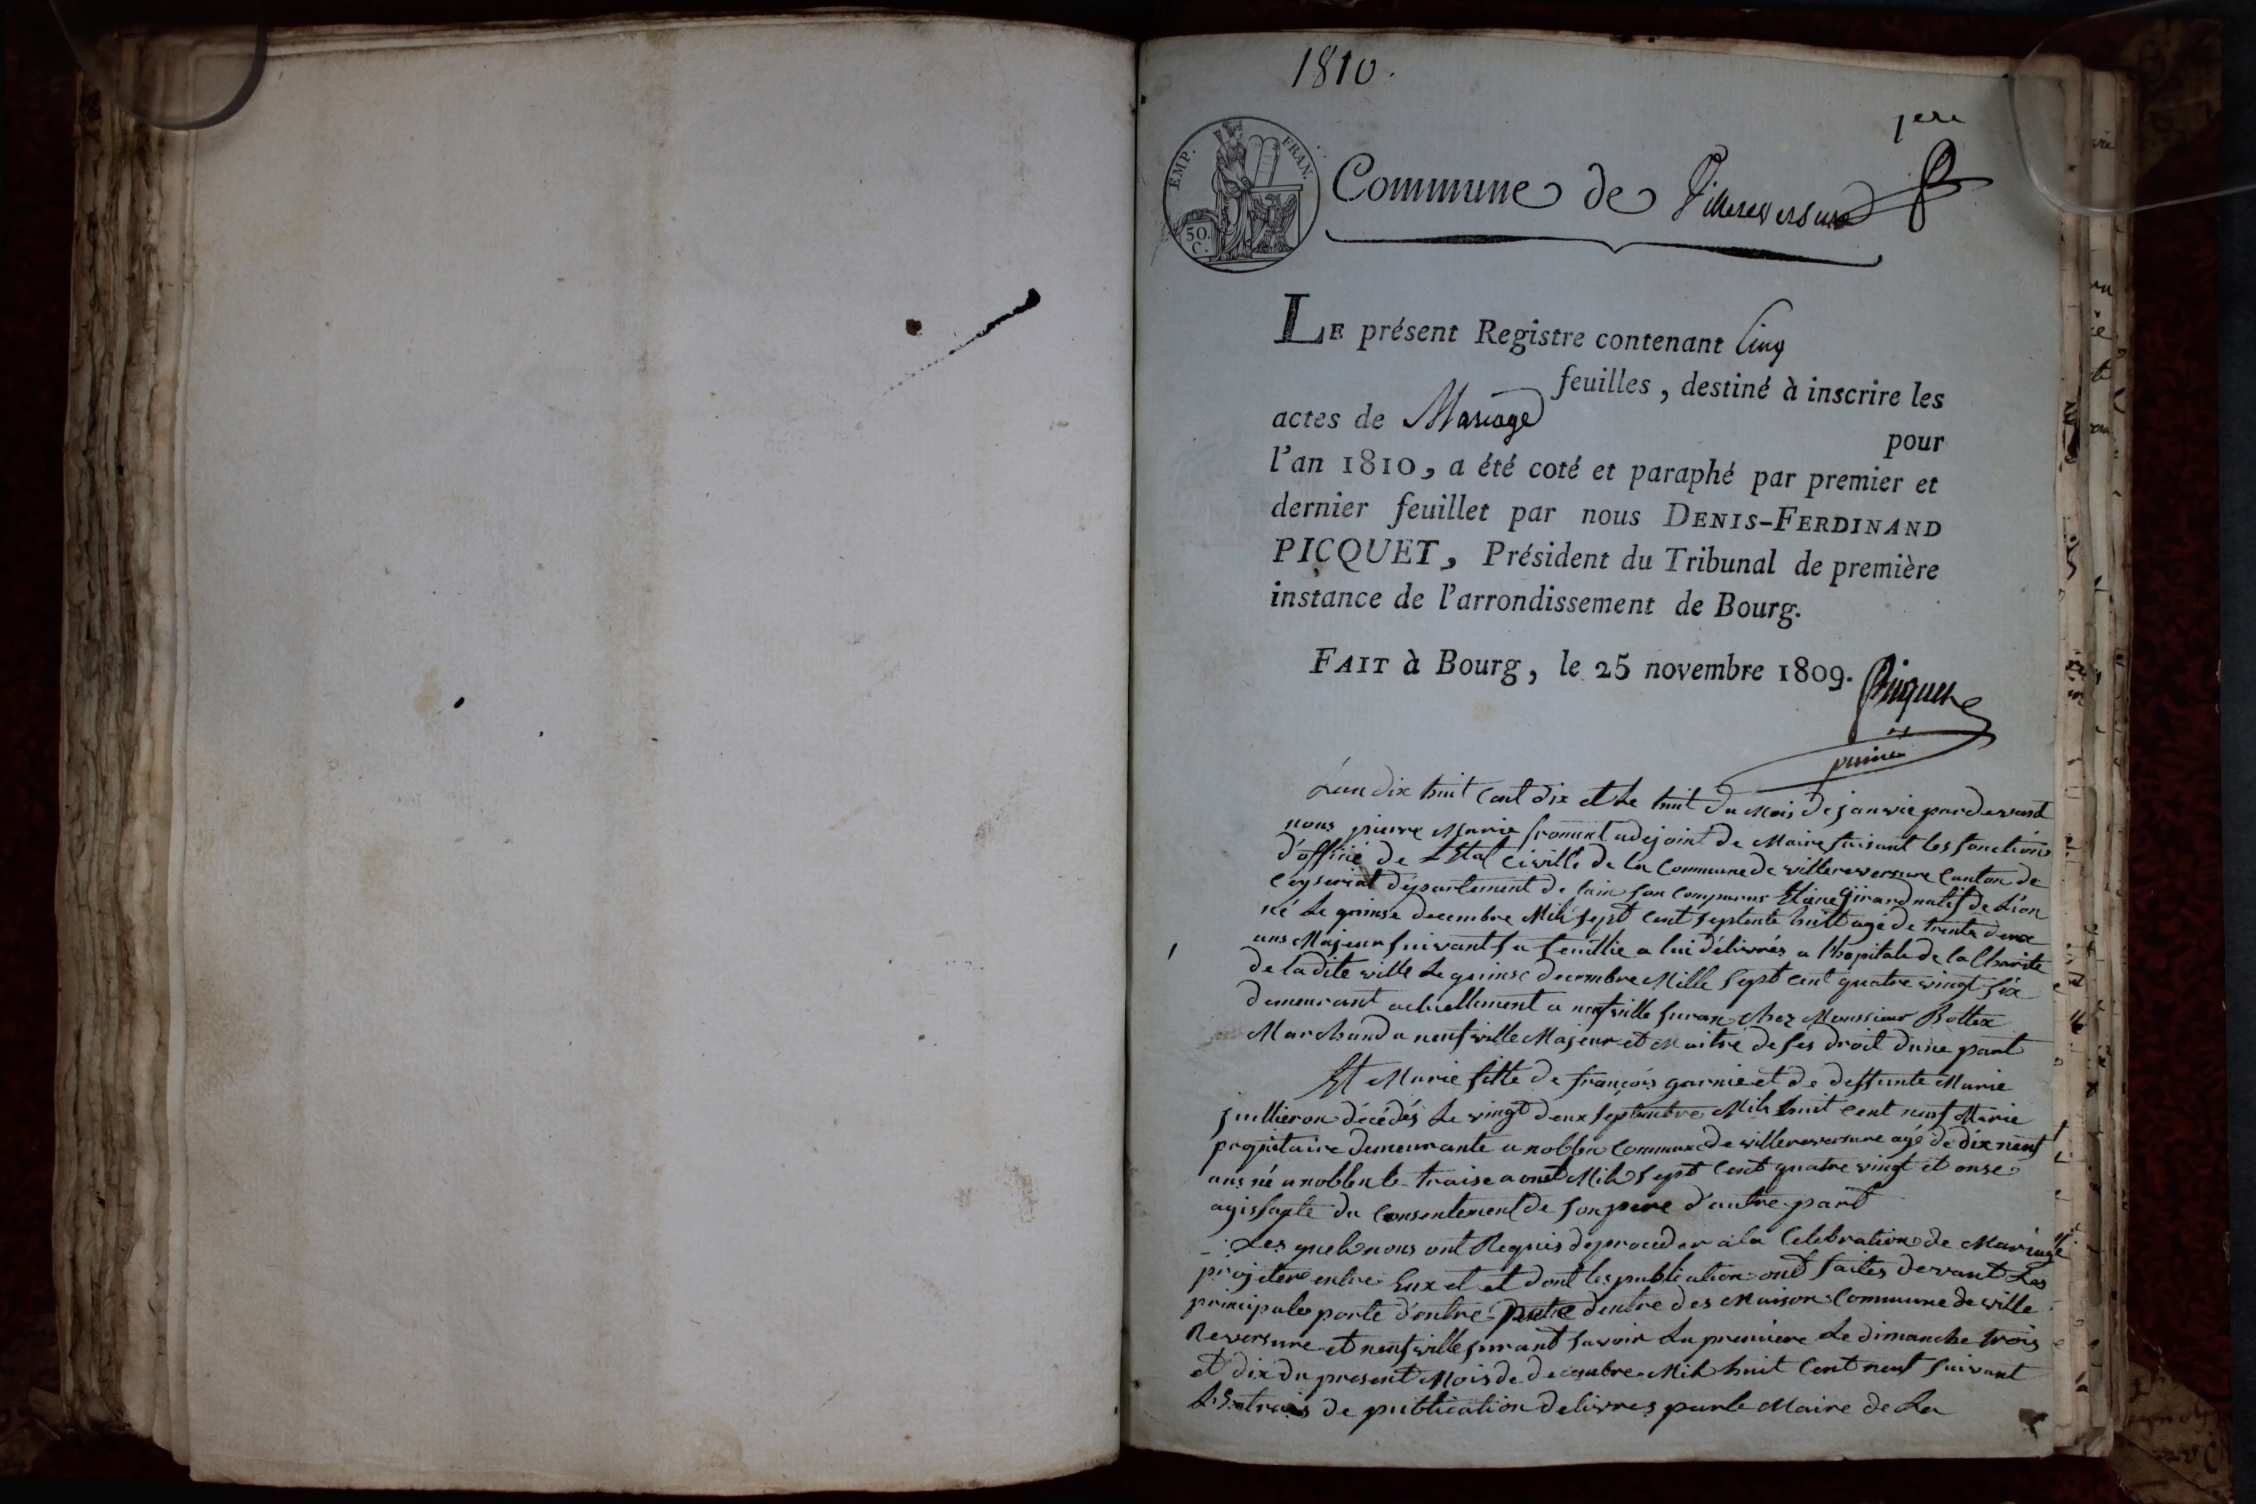 1810.
1ere
EMP. FRAN.
50. C.
Commune de Villereversure
LE présent Registre contenant Cinq
feuilles, destiné à inscrire les
actes de Mariage
pour
l'an 1810, a été coté et paraphé par premier et
dernier feuillet par nous DENIS-FERDINAND
PICQUET, Président du Tribunal de première
instance de l'arrondissement de Bourg.
FAIT à Bourg, le 25 novembre 1809.
Picquet
L'an dix huit Cent dix et Le huit Du Mois De janvie pardevant
nous pierre Marie fromont adejoint De Maire faisant les fonctions
D'officié De L'Etat Civille De La Commune De villereversure Canton De
Ceyseriat Département De lain son Comparus Etiene Girard natif De Lion
né Le quinse Decembre Mile sept Cent septente huit agé De trente Deux
ans Majeur suivant sa feuillie a lui Délivrés a l'hopitale De la Charite
De ladite ville Le quinse Decembre Mille sept Cent quatre vingt six
Demeurant actuellement a neufville suran Chez Monssieur Bottex
Marchand a neufville Majeur et Maitre De ses Droit D'une part
Et Marie fille De François garnie et De Deffunte Marie
juillieron Décédés Le vingt Deux Septembre Mile huit Cent neuf Marie
propiétaire Demeurante a noblen Commune De villereversure agé De dix neuf
ans né a noblen le traise aout Mile sept Cent quatre vingt et onse
agissante Du Consentement De son pere D'autre part
Les quels nous ont Requis De proceder a la Celebration De Mariage
projeter entre Eux et et Dont les publication ont faites Devant Les
principales porte D'entre D'entre Des Maison Commune De ville
Reversure et neufville surant savoir La premiere Le Dimanche trois
et Dix Du present Mois De Decembre Mile huit Cent neuf suivant
L'Extrais De publication Delivres par le Maire De La